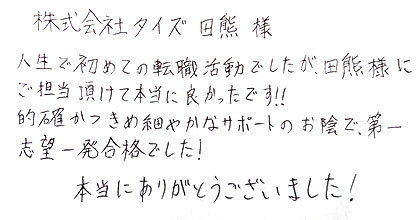 株式会社タイズ 田熊 様
人生で初めての転職活動でしたが、田熊様に
ご担当頂けて本当に良かったです!!
的確かつきめ細やかなサポートのお陰で、第一
志望一発合格でした!
本当にありがとうございました!